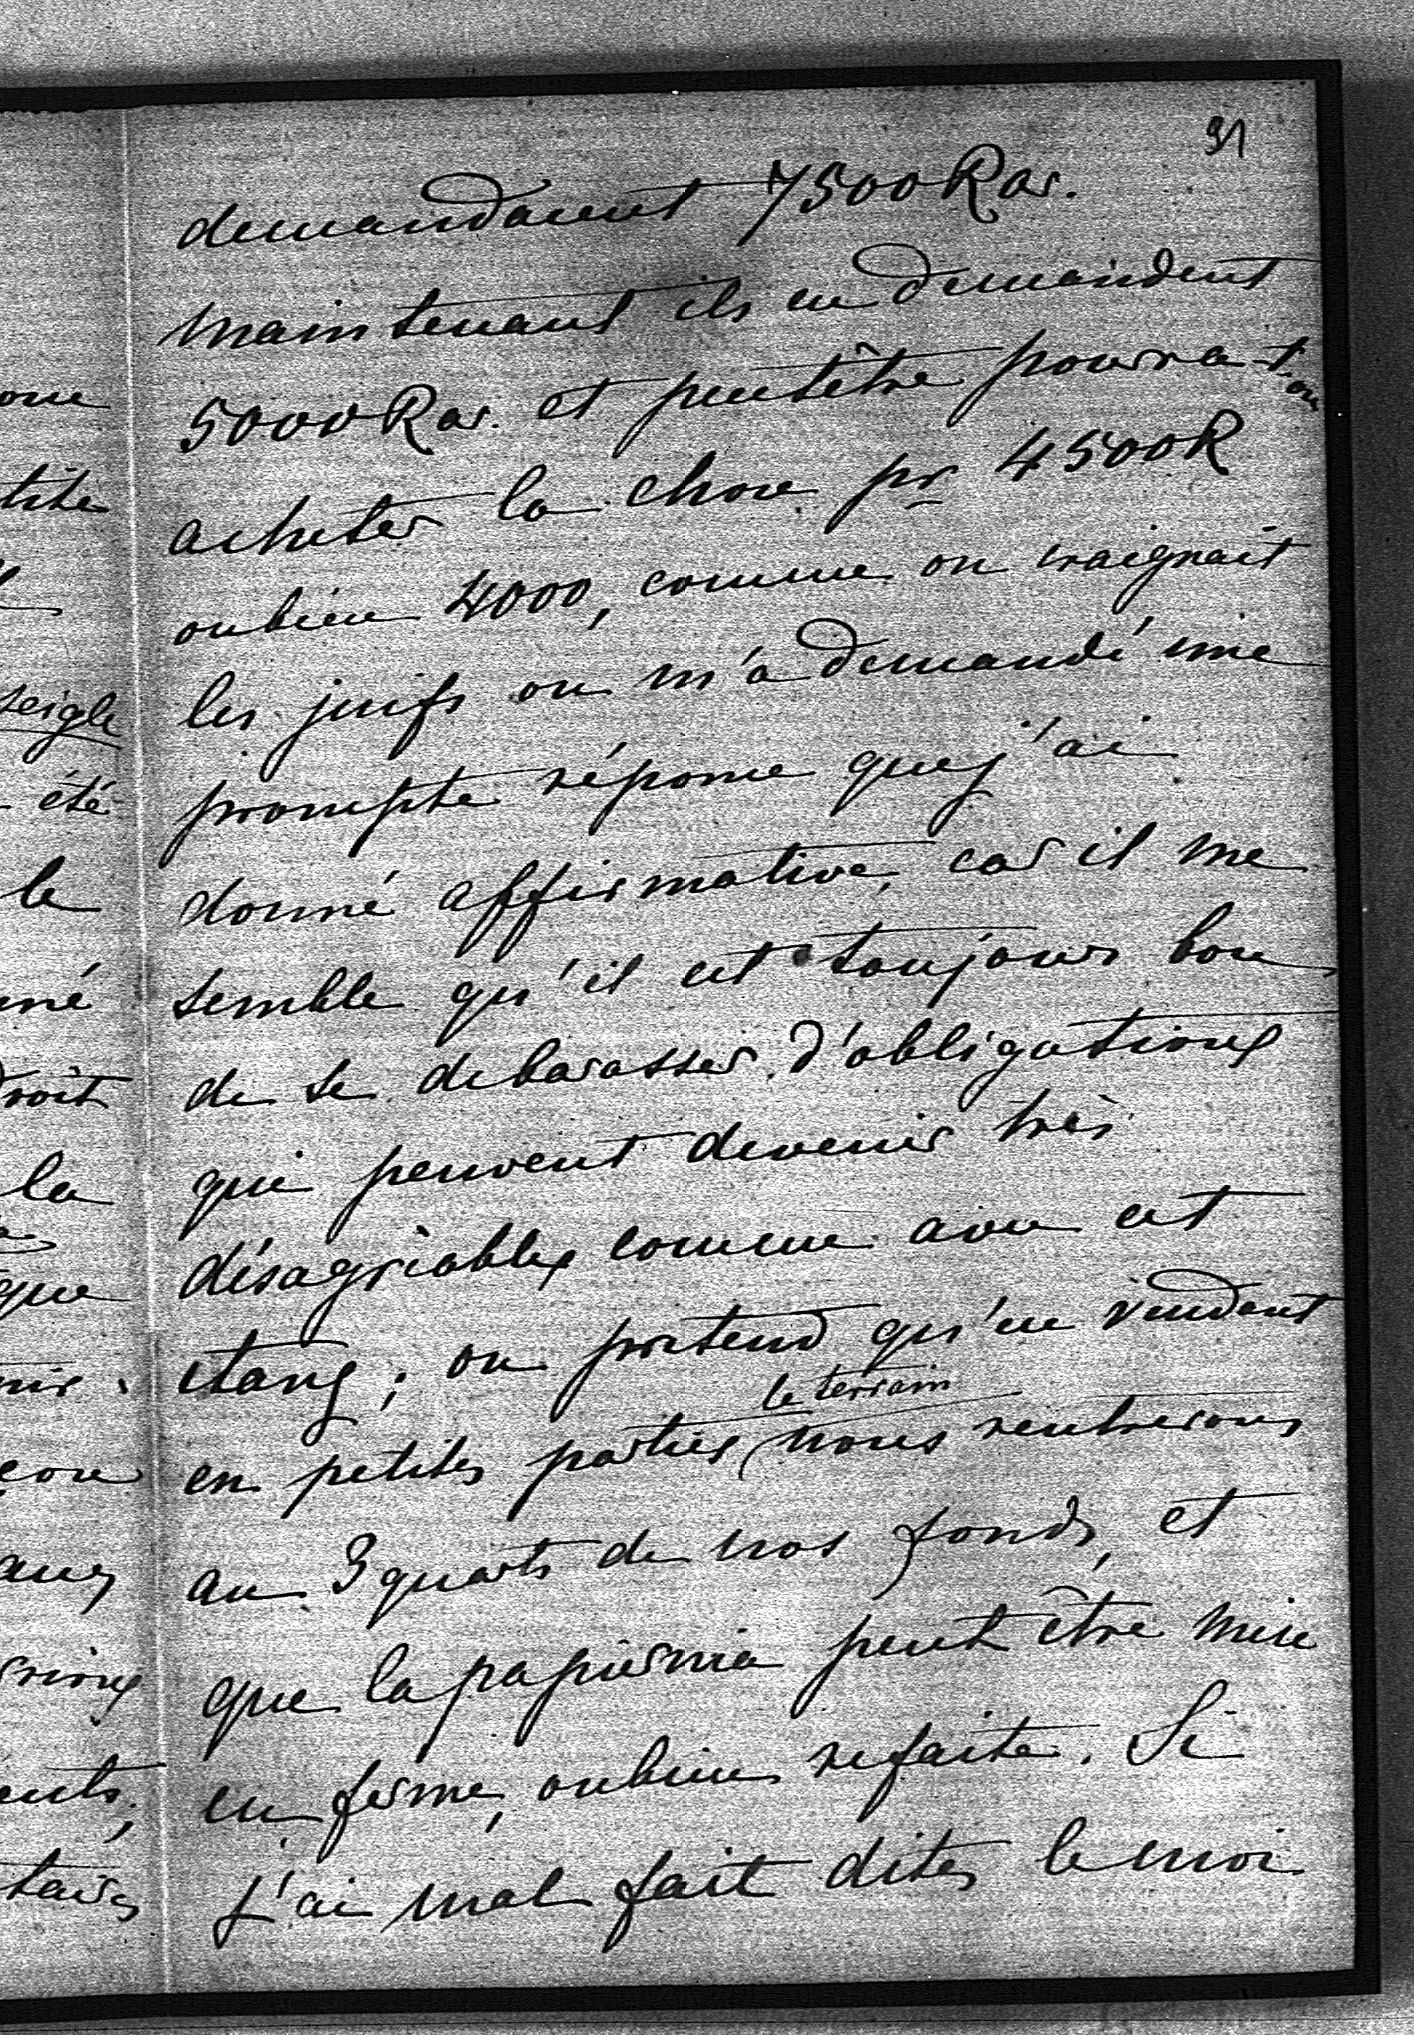 91
demandaient 7500 Rar.
maintenant ils en demandent
5000 Rar. et peutêtre pourra-t-on
acheter la chose pr 4500R
oubien 4000, comme on craignait
les juifs on m'a demandé une
prompte réponse que j'ai
donné affirmative, car il me
semble qu'il est toujours bon
de se debarasser d'obligations
qui peuvent devenir très
désagréables comme avec cet
etang; on pretend qu'en vendant
le terrain
en petites parties nous rentrerons
au 3 quarts de nos fonds, et
que la papiernia peut être mise
en ferme, oubien refaite. Si
j'ai mal fait dites le moi
tite
seigle
été
le
né
droit
la
que